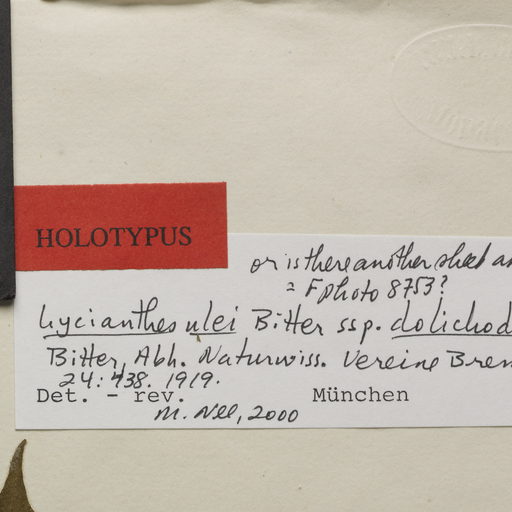 HOLOTYPUS
or is there another sheet
= F photo 8753?
Lycianthes ulei Bitter ssp. dolichod
Bitter, Abh. Naturwiss. Vereine Brem
24: 438. 1919.
Det. - rev. München
M. Nee, 2000